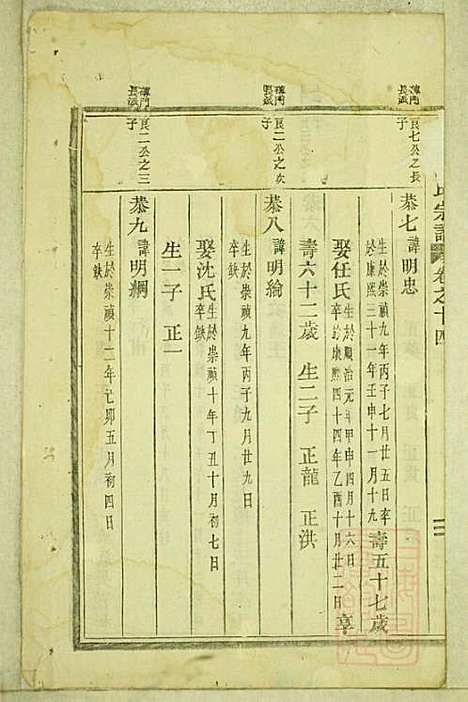 氏宗譜 卷之十四
良七公之長子
恭七 諱明忠
生於崇禎九年丙子七月廿五日卒
於康熙三十一年壬申十一月十九
壽五十七歲
娶任氏
生於順治元年甲申四月十六日
卒於康熙四十四年乙酉十月廿二日
享
壽六十二歲 生二子 正龍 正洪
良二公之次子
恭八 諱明綸
生於崇禎九年丙子九月廿九日
卒缺
娶沈氏
生於崇禎十年丁丑十月初七日
卒缺
生一子 正一
良二公之三子
恭九 諱明綱
生於崇禎十二年己卯五月初四日
卒缺